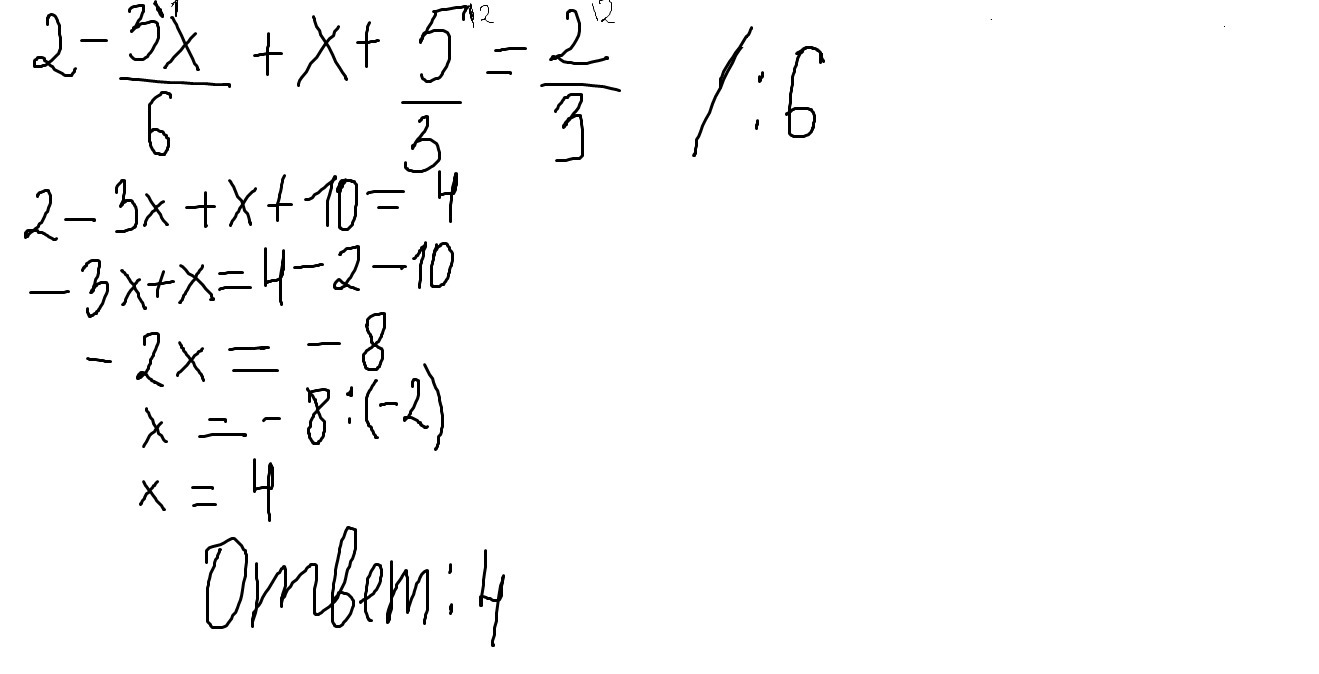 2 - 3x\1/6 + x + 5\2/3 = 2\2/3 / : 6
2 - 3x + x + 10 = 4
- 3x + x = 4 - 2 - 10
- 2x = - 8
x = - 8 : (-2)
x = 4
Ответ: 4